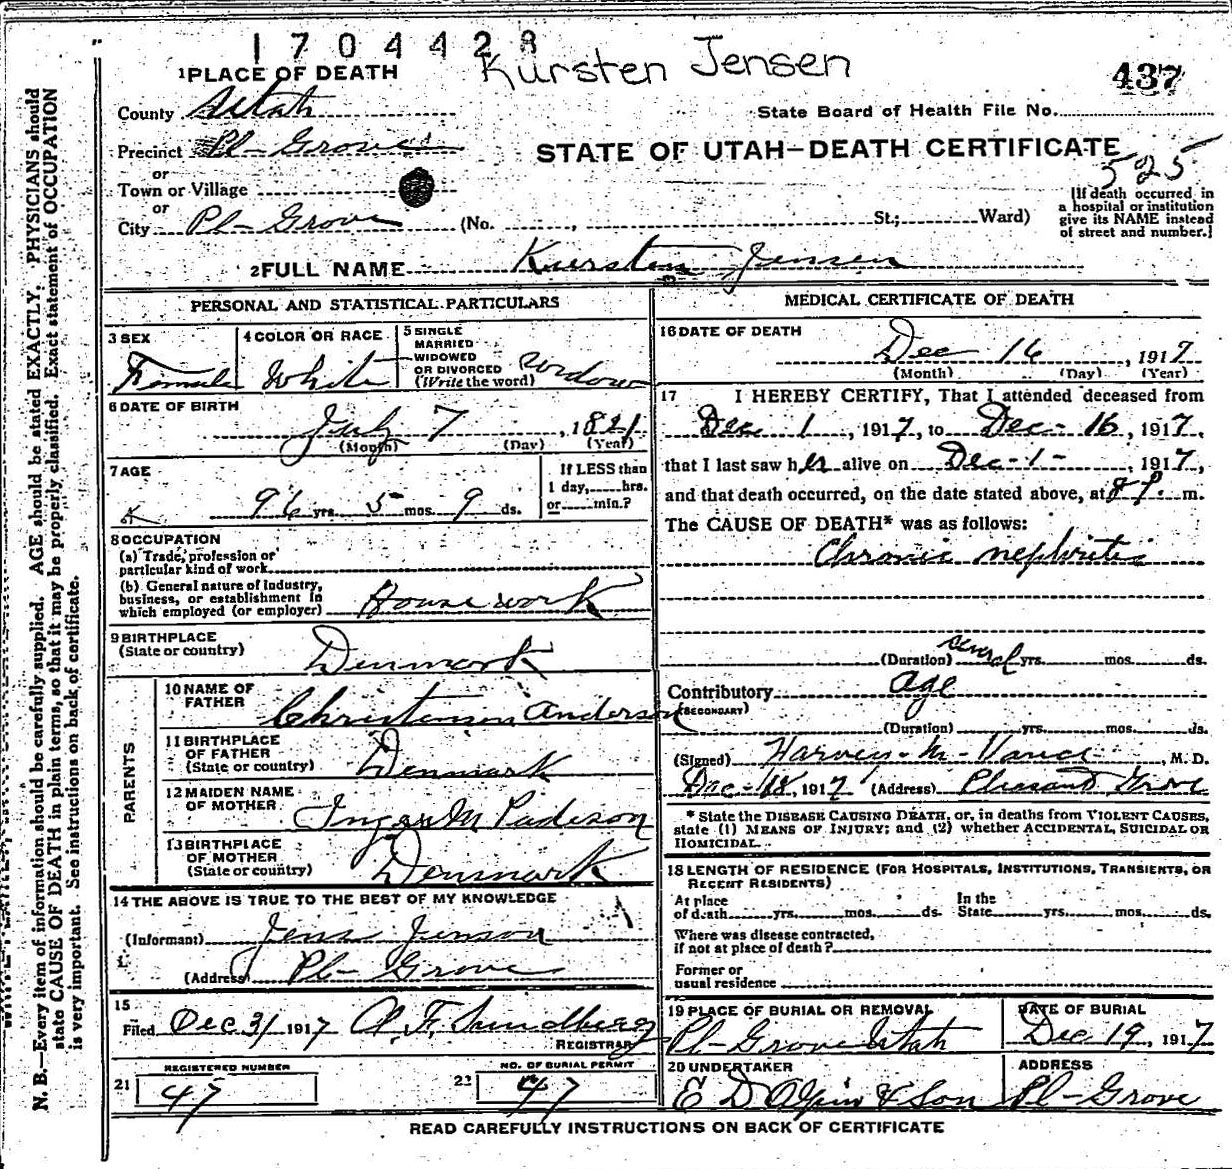 1704428
Kursten Jensen
437
1 PLACE OF DEATH
County Utah
State Board of Health File No.
Precinct Pl-Grove
STATE OF UTAH—DEATH CERTIFICATE
525
or
Town or Village
or
City Pl-Grove (No. , St.; Ward)
[If death occurred in
a hospital or institution
give its NAME instead
of street and number.]
2 FULL NAME Kursten Jensen
PERSONAL AND STATISTICAL PARTICULARS
3 SEX
Female
4 COLOR OR RACE
White
5 SINGLE
MARRIED
WIDOWED
OR DIVORCED
(Write the word)
Widow
6 DATE OF BIRTH
July 7, 1821
(Month) (Day) (Year)
7 AGE
96 yrs. 5 mos. 9 ds.
If LESS than
1 day, hrs.
or min.?
8 OCCUPATION
(a) Trade, profession or
particular kind of work
(b) General nature of industry,
business, or establishment in
which employed (or employer) Housework
9 BIRTHPLACE
(State or country) Denmark
PARENTS
10 NAME OF
FATHER
Christensen Anderson
11 BIRTHPLACE
OF FATHER
(State or country) Denmark
12 MAIDEN NAME
OF MOTHER
13 BIRTHPLACE
OF MOTHER
(State or country) Denmark
14 THE ABOVE IS TRUE TO THE BEST OF MY KNOWLEDGE
(Informant) Jens Jenson
(Address) Pl-Grove
15
Filed Dec 31 1917
REGISTRAR
REGISTERED NUMBER
21 47
NO. OF BURIAL PERMIT
22 47
MEDICAL CERTIFICATE OF DEATH
16 DATE OF DEATH
Dec 16, 1917
(Month) (Day) (Year)
17 I HEREBY CERTIFY, That I attended deceased from
Dec 1, 1917, to Dec-16, 1917,
that I last saw her alive on Dec-1-, 1917,
and that death occurred, on the date stated above, at 8 P. m.
The CAUSE OF DEATH* was as follows:
Chronic nephritis
(Duration) several yrs. mos. ds.
Contributory age
(SECONDARY)
(Duration) yrs. mos. ds.
(Signed) Harvey-M-Vance, M. D.
Dec-18, 1917 (Address) Pleasant Grove
* State the DISEASE CAUSING DEATH, or, in deaths from VIOLENT CAUSES,
state (1) MEANS OF INJURY; and (2) whether ACCIDENTAL, SUICIDAL OR
HOMICIDAL.
18 LENGTH OF RESIDENCE (FOR HOSPITALS, INSTITUTIONS, TRANSIENTS, OR
RECENT RESIDENTS)
At place
of death yrs. mos. ds.
In the
State yrs. mos. ds.
Where was disease contracted,
if not at place of death?
Former or
usual residence
19 PLACE OF BURIAL OR REMOVAL
Pl-Grove Utah
DATE OF BURIAL
Dec 19, 1917
20 UNDERTAKER
E D Olpin & Son
ADDRESS
Pl-Grove
READ CAREFULLY INSTRUCTIONS ON BACK OF CERTIFICATE
N. B.—Every item of information should be carefully supplied. AGE should be stated EXACTLY. PHYSICIANS should
state CAUSE OF DEATH in plain terms, so that it may be properly classified. Exact statement of OCCUPATION
is very important. See instructions on back of certificate.